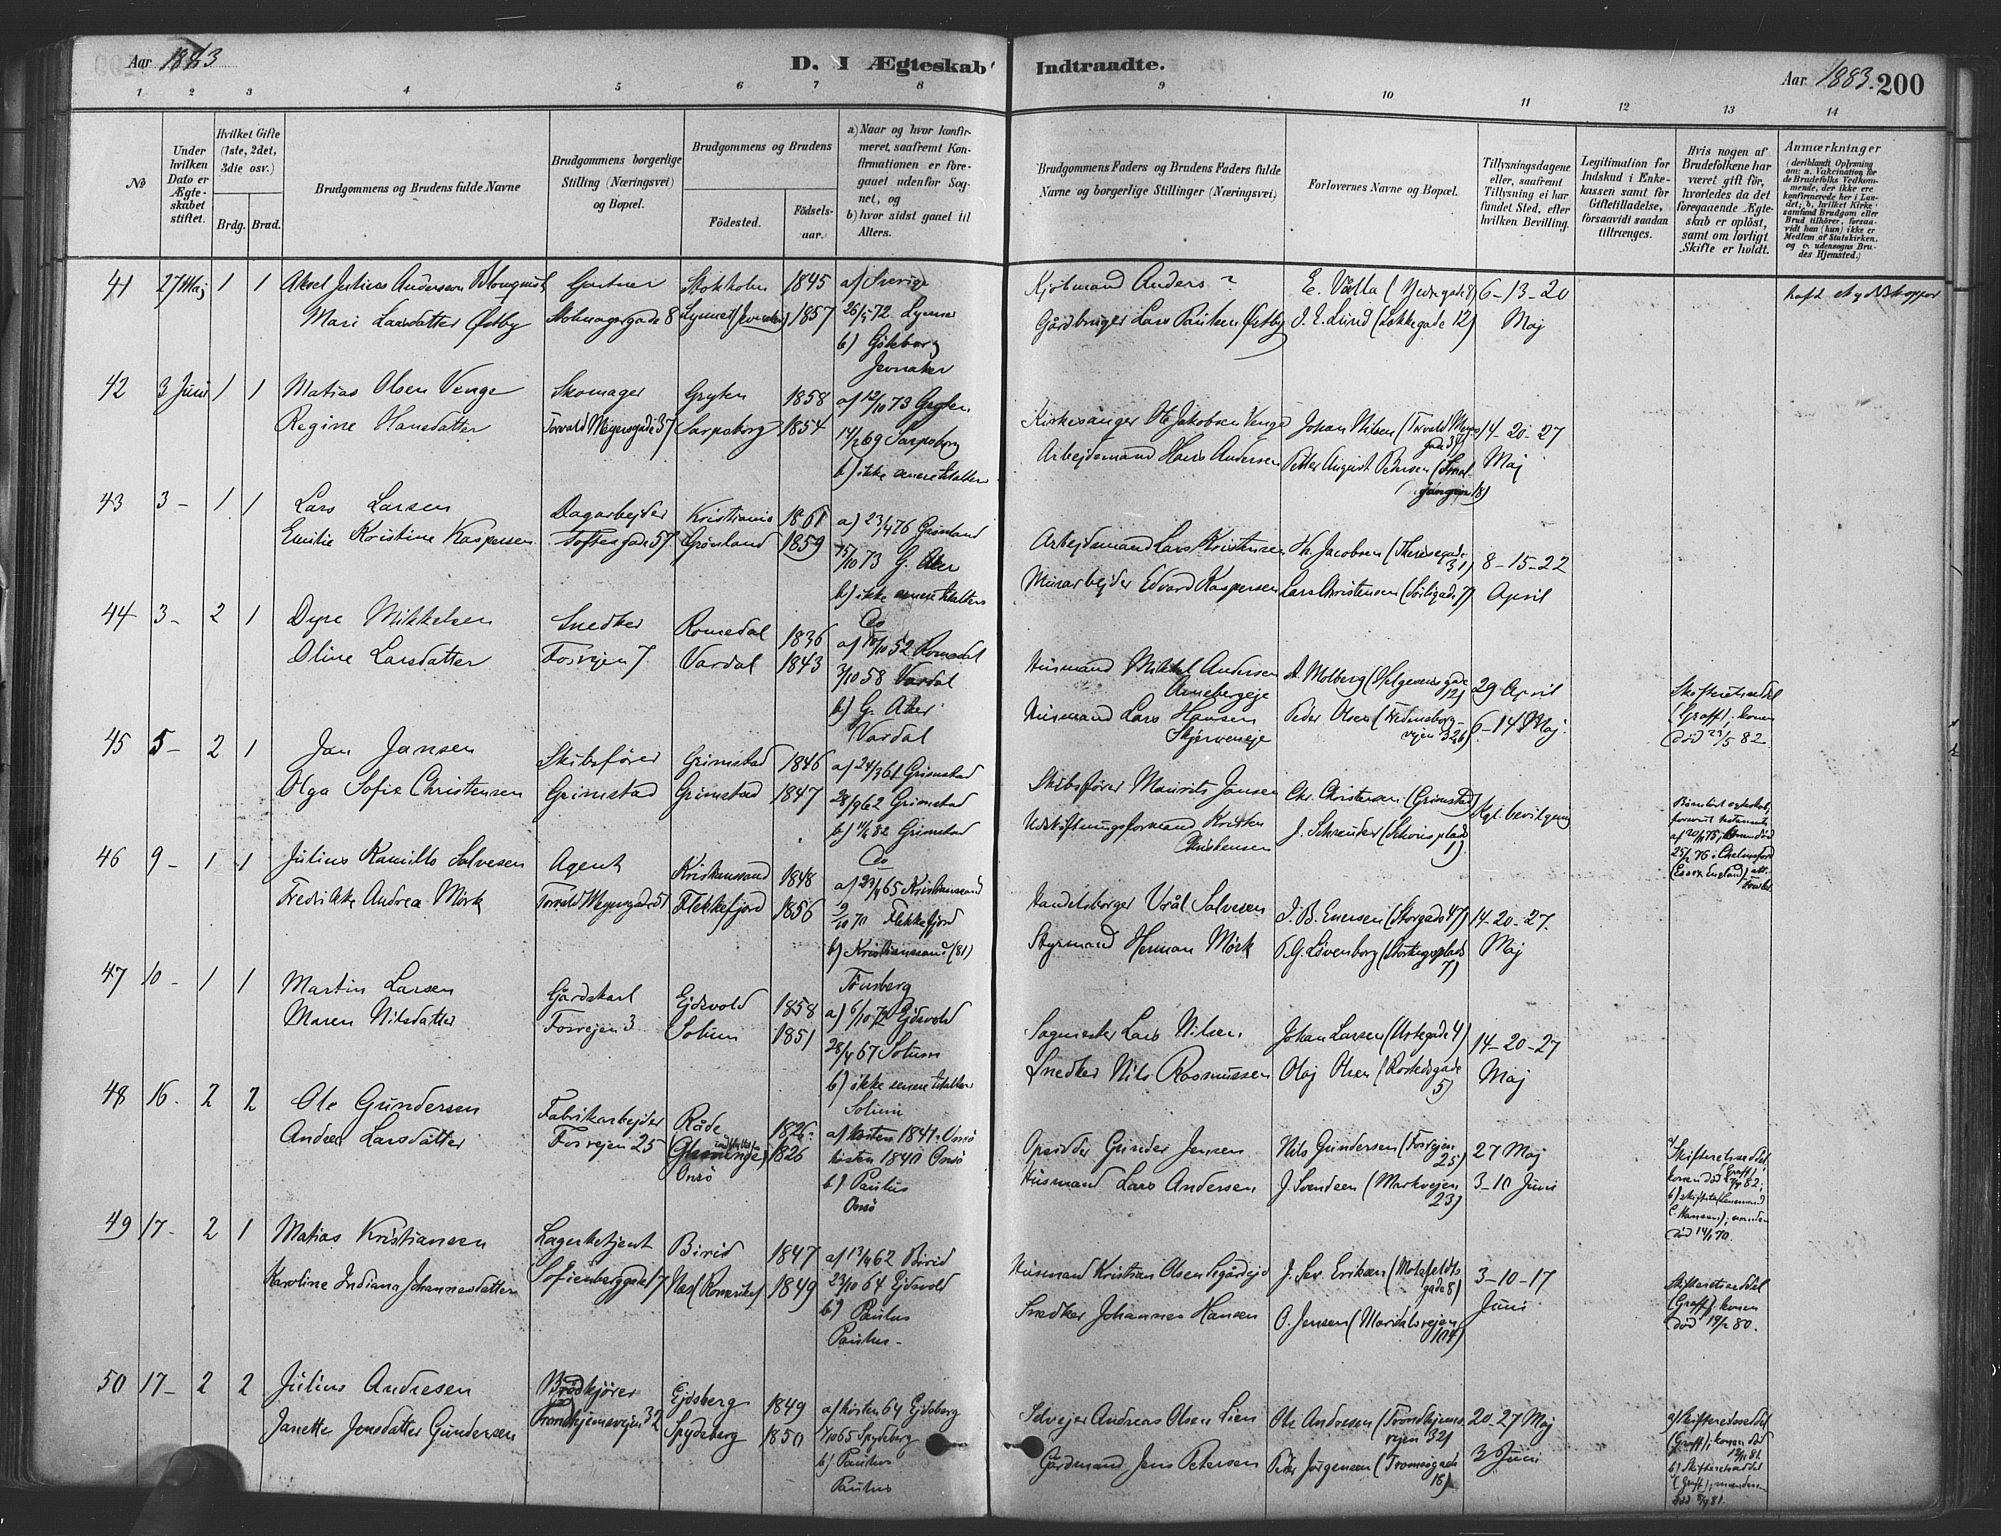 Aar 1883
D. I Ægteskab Indtraadte.
Aar 1883. 200
1 2 3 4 5 6 7 8 9 10 11 12 13 14
No
Under hvilken Dato er Ægteskabet stiftet.
Hvilket Gifte (1ste, 2det, 3die osv.)
Brdg. Brud.
Brudgommens og Brudens fulde Navne
Brudgommens borgerlige Stilling (Næringsvei) og Bopæl.
Brudgommens og Brudens
Fødested.
Fødselsaar.
a) Naar og hvor konfirmeret, saafremt Konfirmationen er foregaaet udenfor Sognet, og
b) hvor sidst gaaet til Alters.
Brudgommens Faders og Brudens Faders fulde Navne og borgerlige Stillinger (Næringsvei)
Forlovernes Navne og Bopæl.
Tillysningsdagene eller, saafremt Tillysning ei har fundet Sted, efter hvilken Bevilling.
Legitimation for Indskud i Enkekassen samt for Giftetilladelse, forsaavidt saadan tiltrænges.
Hvis nogen af Brudefolkene har været gift før, hvorledes da det foregaaende Ægteskab er opløst, samt om lovligt Skifte er holdt.
Anmærkninger (deriblandt Oplysning om: a. Vakcination for de Brudefolks Vedkommende, der ikke ere konfirmerede her i Landet; b. hvilket Kirkesamfund Brudgom eller Brud tilhører, forsaavidt han (hun) ikke er Medlem af Statskirken, og c. udensogns Brudes Hjemsted.)
41 27 Maj 1 1 Aksel Julius Anderson Blomquist Gartner Stokholm 1845 a) Sverige
Kjøbmand Anders ? 6-13-20
Mari Larsdatter Østby 8 Lynner (Jevnaker) 1857 26/5 72 Lynner
Gårdbruger Lars Paulsen Østby J. E. Lund (Løkkegade 12) Maj
b) Göteborg
Jevnaker
42 3 Juni 1 1 Matias Olsen Venge Skomager Gryten 1858 a) 12/10 73 Gryten
Kirkesanger Jakobsen Venge Johan Nilsen (Torvald Meyersgade 37) 14-20-27
Regine Hansdatter Torvald Meyersgade 37 Sarpsborg 1854 14/2 69 Sarpsborg
Arbejdsmand Hans Andersen Petter August Petersen Maj
b) ikke senere tilalters
43 3 - 1 1 Lars Larsen Dagarbejder Kristiania 1861 a) 23/4 76 Grønland
Arbejdsmand Lars Kristensen H. Jacobsen (Theresegade 31) 8-15-22
Emilie Kristine Kaspersen Toftesgade 57 Grønland 1859 15/10 73 G. Aker
Murarbejder Edvard Kaspersen Lars Christensen 7) April
b) ikke senere tilalters
Do
44 3 - 2 1 Dyre Mikkelsen Snedker Romedal 1836 a) 52 Romedal
Husmand Mikkel Andersen Arnebergeje A. Molberg (Helgesensgade 12) 29 April
Oline Larsdatter Fosvejen 7. Vardal 1843 3/10 58 Vardal
Husmand Lars Hansen Skjerveneje Peder Olsen 6-14 Maj.
b) G. Aker
Vardal
Skifteretseddel (Graff); konen død 23/5 82.
45 5 - 2 1 Jan Jansen Skibsfører Grimstad 1846 a) 24/3 61 Grimstad
Skibsfører Mauritz Jansen Chr. Christensen (Grimstad) Kgl. bevilgning
Olga Sofie Christensen Grimstad Grimstad 1847 28/9 62 Grimstad
Udskiftningsformand Kristen Christensen J. Schrøder
b) 82 Grimstad
Do
46 9 - 1 1 Julius Kamillo Salvesen Agent Kristiansand 1848 a) 23/4 65 Kristiansand
Handelsborger Vrål Salvesen J. B. Enersen (Storgade 47) 14-20-27.
Fredrikke Andrea Mørk Torvald Meyersgade 51 Flekkefjord 1856 9/10 70 Flekkefjord
Styrmand Herman Mørk T. G. Løvenborg (Stortingsplads 7) Maj
b) Kristianssand (81)
Tønsberg
47 10 - 1 1 Martin Larsen Gårdskarl Ejdsvold 1858 a) 6/10 72 Ejdsvold
Sagmester Lars Nilsen. Johan Larsen 4) 14-20-27
Maren Nilsdatter Fosvejen 3 Solum 1851 28/4 67 Solum
Snedker Nils Rasmussen Olaj Olsen 5) Maj
b) ikke senere tilalters
Solum
48 16. 2 2 Ole Gundersen Fabrikarbejder Råde 1826. a) høsten 1841 Onsø
Opsidder Gunder Jensen Nils Gundersen (Fosvejen 25) 27 Maj
Andrea Larsdatter Fosvejen 25 Onsö 1826 høsten 1840 Onsö
Husmand Lars Andersen J. Svendsen (Markvejen 23) 3-10 Juni
b) Paulus
Onsö
49 17 - 2 1 Matias Kristiansen Lagerbetjent Birid 1847 a) 62 Birid
Husmand Kristian Olsen J. Sev. Eriksen (Motzfeldtsgade 8) 3-10-17
Karoline Indiana Johannesdatter Sofienberggade 17 Næs (Romerike) 1849 23/10 64 Ejdsvold
Snedker Johannes Hansen O. Jensen (Maridalsvejen 104) Juni
b) Paulus
Paulus -
Skifteretseddel (Graff); konen død 80.
50 17 - 2 2 Julius Andresen Brødkjører Ejdsberg 1849 a) høsten 64 Ejdsberg
Selvejer Andreas Olsen Lien Ole Andresen (Trondhjemsvejen 32) 20-27 Maj
Janette Jensdatter Gundersen Trondhjemsvejen 32 Spydeberg 1850 65 Spydeberg
Gårdmand Jens Petersen Peter Jørgensen (Tromsøgade 18) 3 Juni
b) Paulus
Paulus